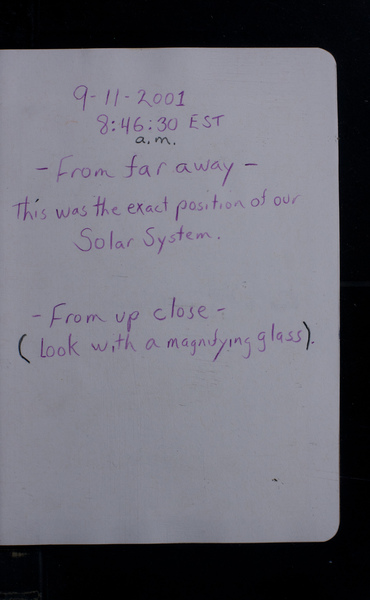 9-11-2001
8:46:30 EST
a.m.
- From far away -
This was the exact position of our
Solar System.
- From up close -
(Look with a magnifying glass).